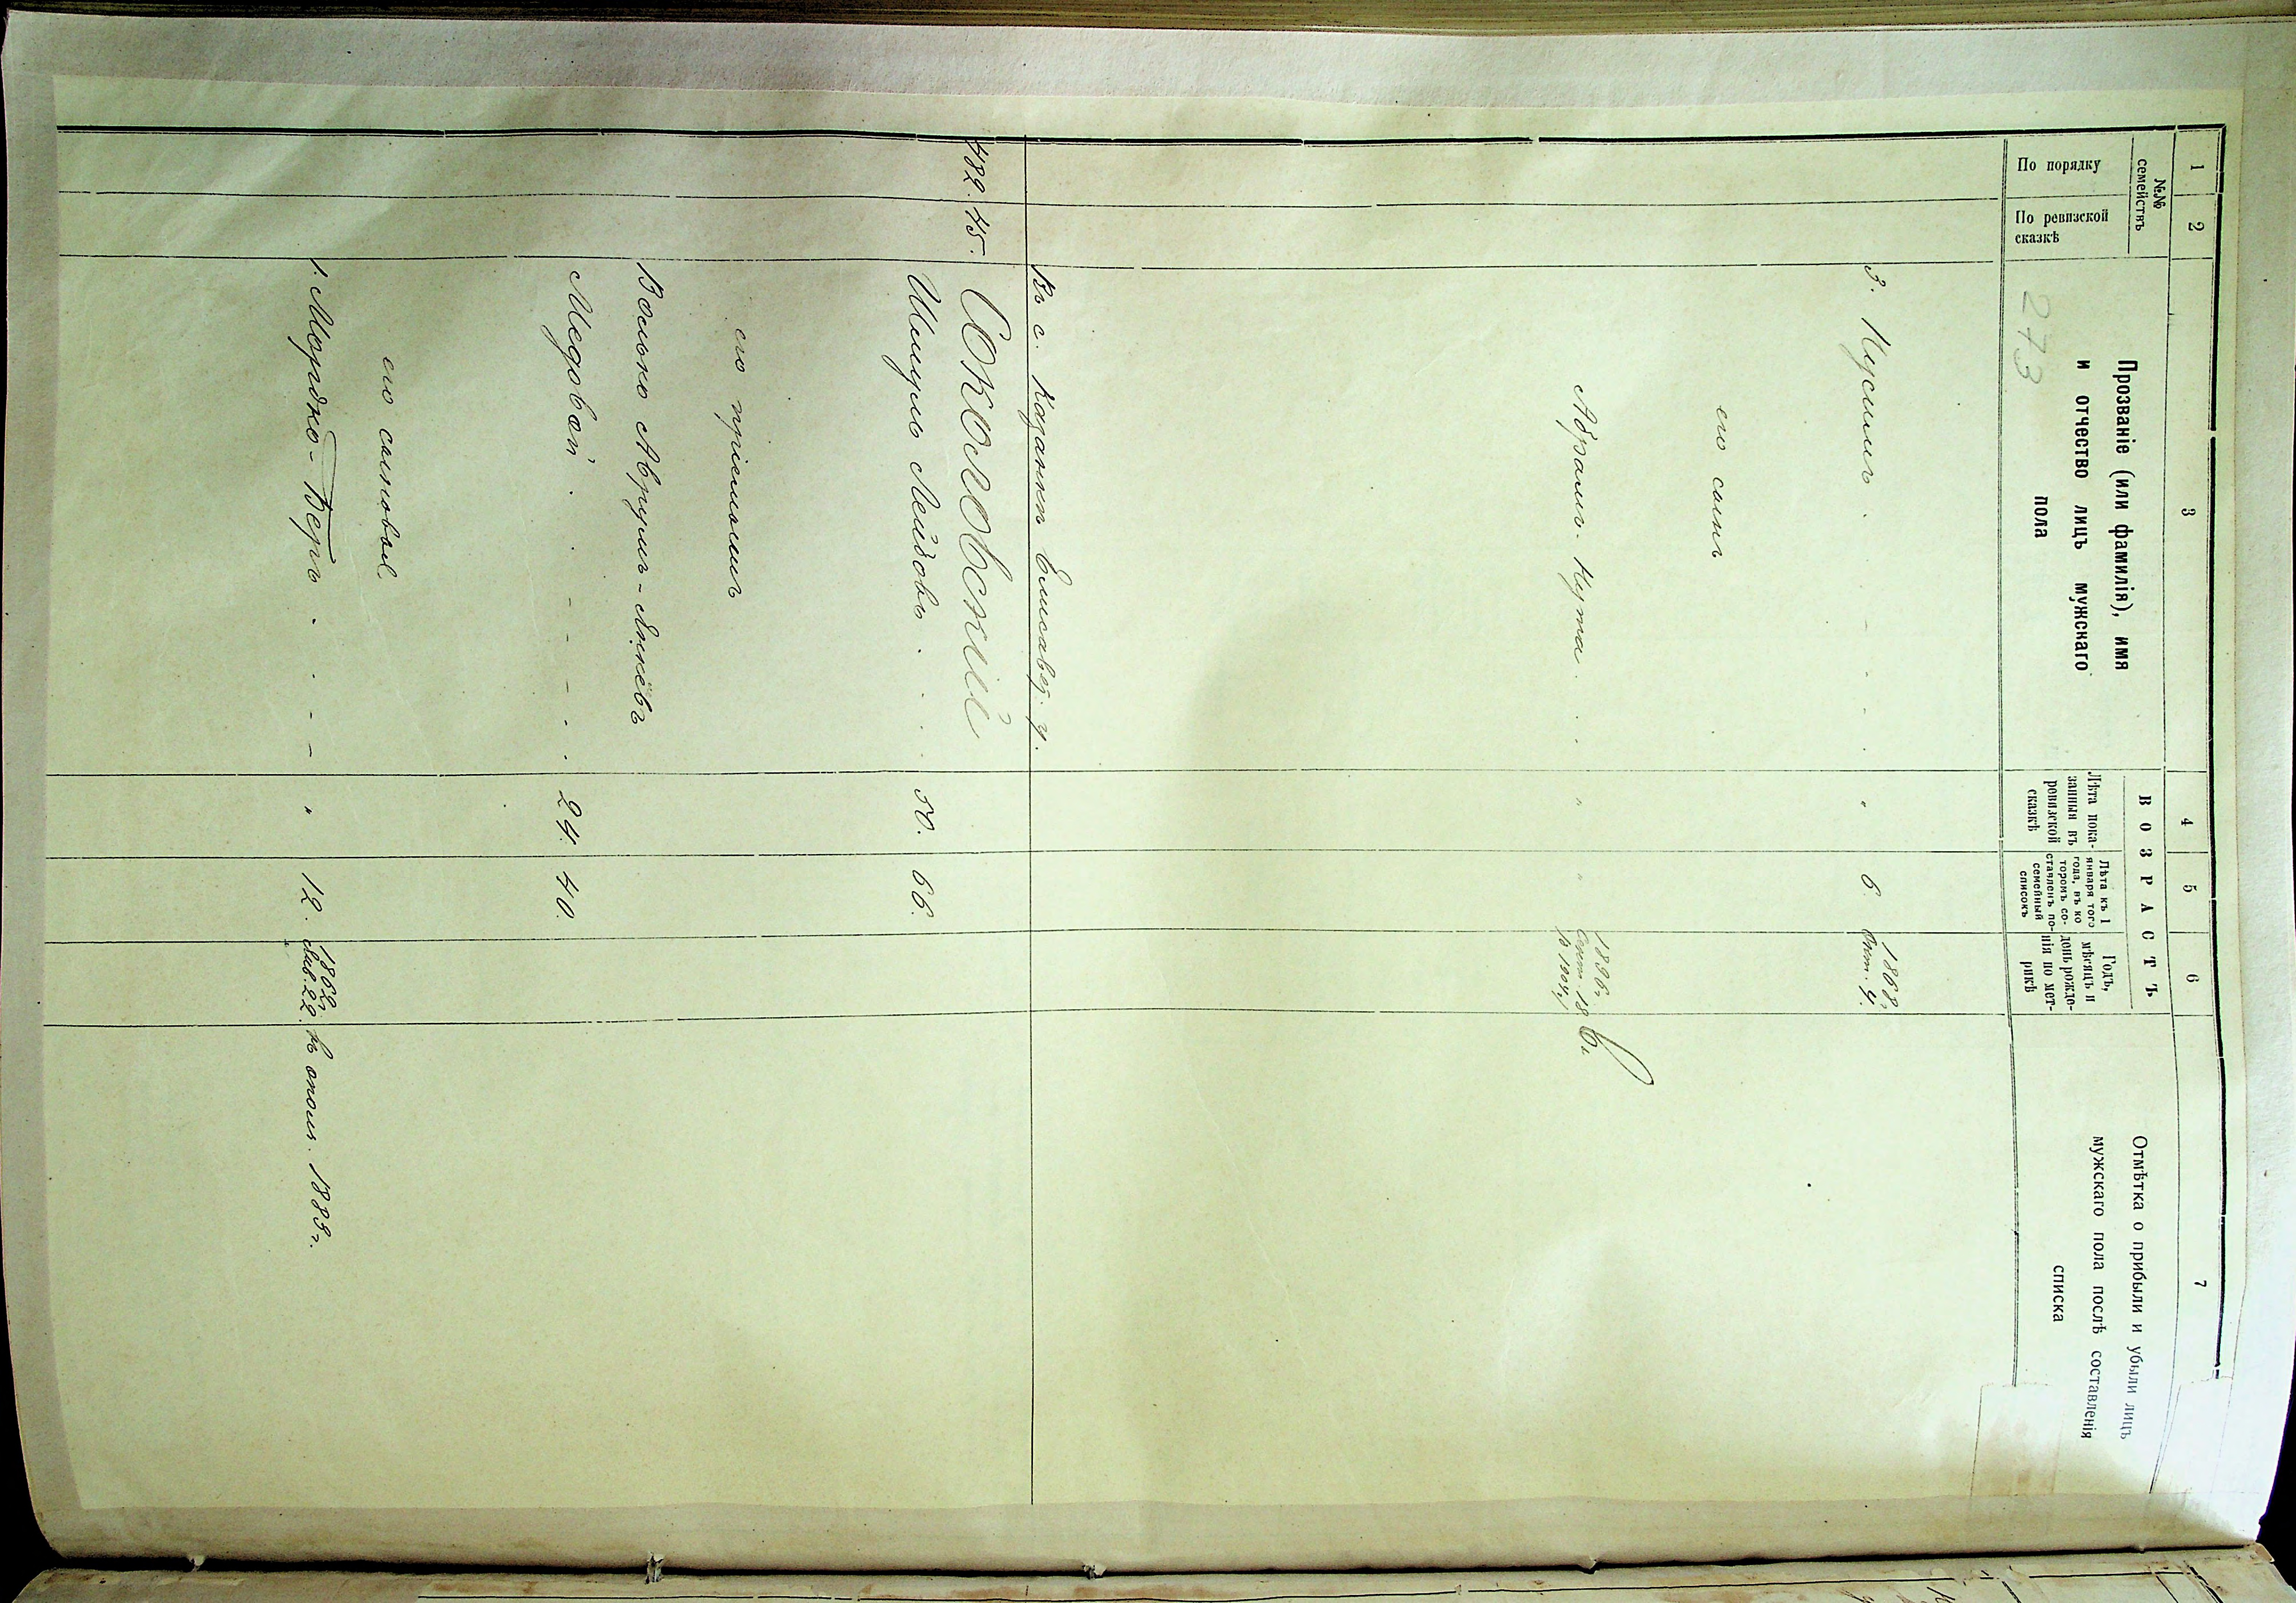 1 2 3 4 5 6 7
№№ семействъ
По порядку
По ревизской сказкѣ
Прозваніе (или фамилія), имя
и отчество лицъ мужскаго
пола
ВОЗРАСТЪ
Лѣта пока-
занныя въ
ревизской
сказкѣ
Лѣта къ 1
января того
года, въ ко
торомъ со-
ставленъ по-
семейный
списокъ
Годъ,
мѣсяцъ и
день рожде-
нія по мет-
рикѣ
Отмѣтка о прибыли и убыли лицъ
мужскаго пола послѣ составленія
списка
273
3. Нусимъ . . - - - . " 6. 1868 г. Окт. 4.
его сынъ
Абрамъ-Нута . . . " " 1896 г. Сент. 18
Въ с. Казанкѣ Елисавет. у.
482. 45. Соколовскій
Шмуль Лейбовъ . . . 50. 66.
его пріемышъ
Волько Аврумъ-Янкевъ
Медовой . . - - - . . 24. 40.
его сыновья
1. Мордко-Беръ . . - - " 12. 1862 Янв. 22. въ опол. 1883 г.